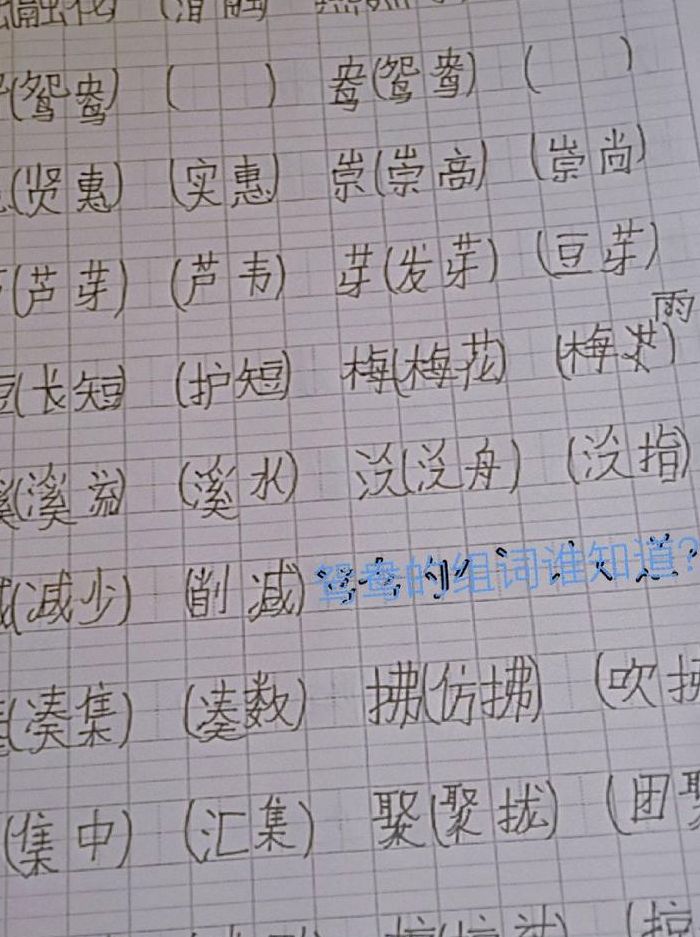 融化 (消融
(鸳鸯) (  ) 鸯(鸳鸯) (  )
(贤惠) (实惠) 崇(崇高) (崇尚)
(芦芽) (芦韦) 芽(发芽) (豆芽)
雨
短(长短) (护短) 梅(梅花) (梅
溪(溪流) (溪水) 泛(泛舟) (泛指)
减(减少) (削减)
鸳鸯的组词谁知道?
(凑集) (凑数) 拂(仿拂) (吹拂
(集中) (汇集) 聚(聚拢) (团聚